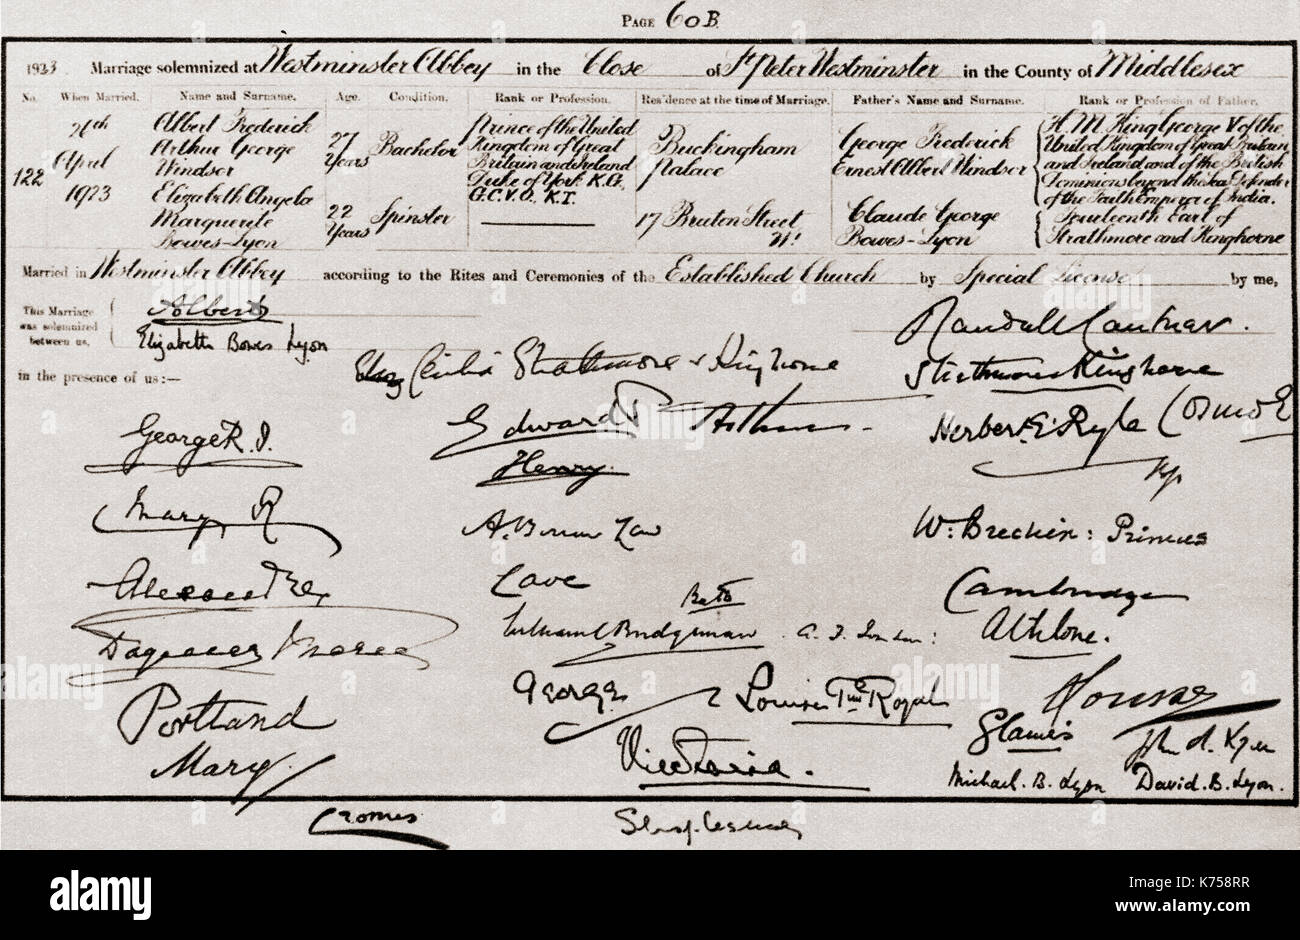 PAGE 60B
1923 Marriage solemnized at Westminster Abbey in the Close of St Peter Westminster in the County of Middlesex
No. When Married. Name and Surname. Age. Condition. Rank or Profession. Residence at the time of Marriage. Father's Name and Surname. Rank or Profession of Father.
122 26th April 1923
Albert Frederick
Arthur George
Windsor
27 Years
Bachelor
Prince of the United
Kingdom of Great
Britain and Ireland
Duke of York K.G.,
G.C.V.O., K.T.
Buckingham
Palace
George Frederick
Ernest Albert Windsor
H.M. King George V of the
United Kingdom of Great Britain
and Ireland and of the British
Dominions beyond the Sea Defender
of the Faith Emperor of India.
Elizabeth Angela
Marguerite
Bowes-Lyon
22 Years
Spinster
17 Bruton Street
W1
Claude George
Bowes-Lyon
Fourteenth Earl of
Strathmore and Kinghorne
Married in Westminster Abbey according to the Rites and Ceremonies of the Established Church by Special License by me,
This Marriage
was solemnized
between us,
Albert
Elizabeth Bowes Lyon
Randall Cantuar.
in the presence of us:—
Cecilia Strathmore & Kinghorne
Strathmore Kinghorne
George R.I.
Edward P
Arthur.
Herbert E. Ryle
Henry.
Mary R
W. Brechin: Primus
Alexandra
Cave
Cambridge
William C Bridgeman
Athlone.
Portland
George
Louise
Royal
Mary
Victoria.
Glamis
Michael. B. Lyon
David. B. Lyon.
alamy
alamy stock photo
K758RR
www.alamy.com